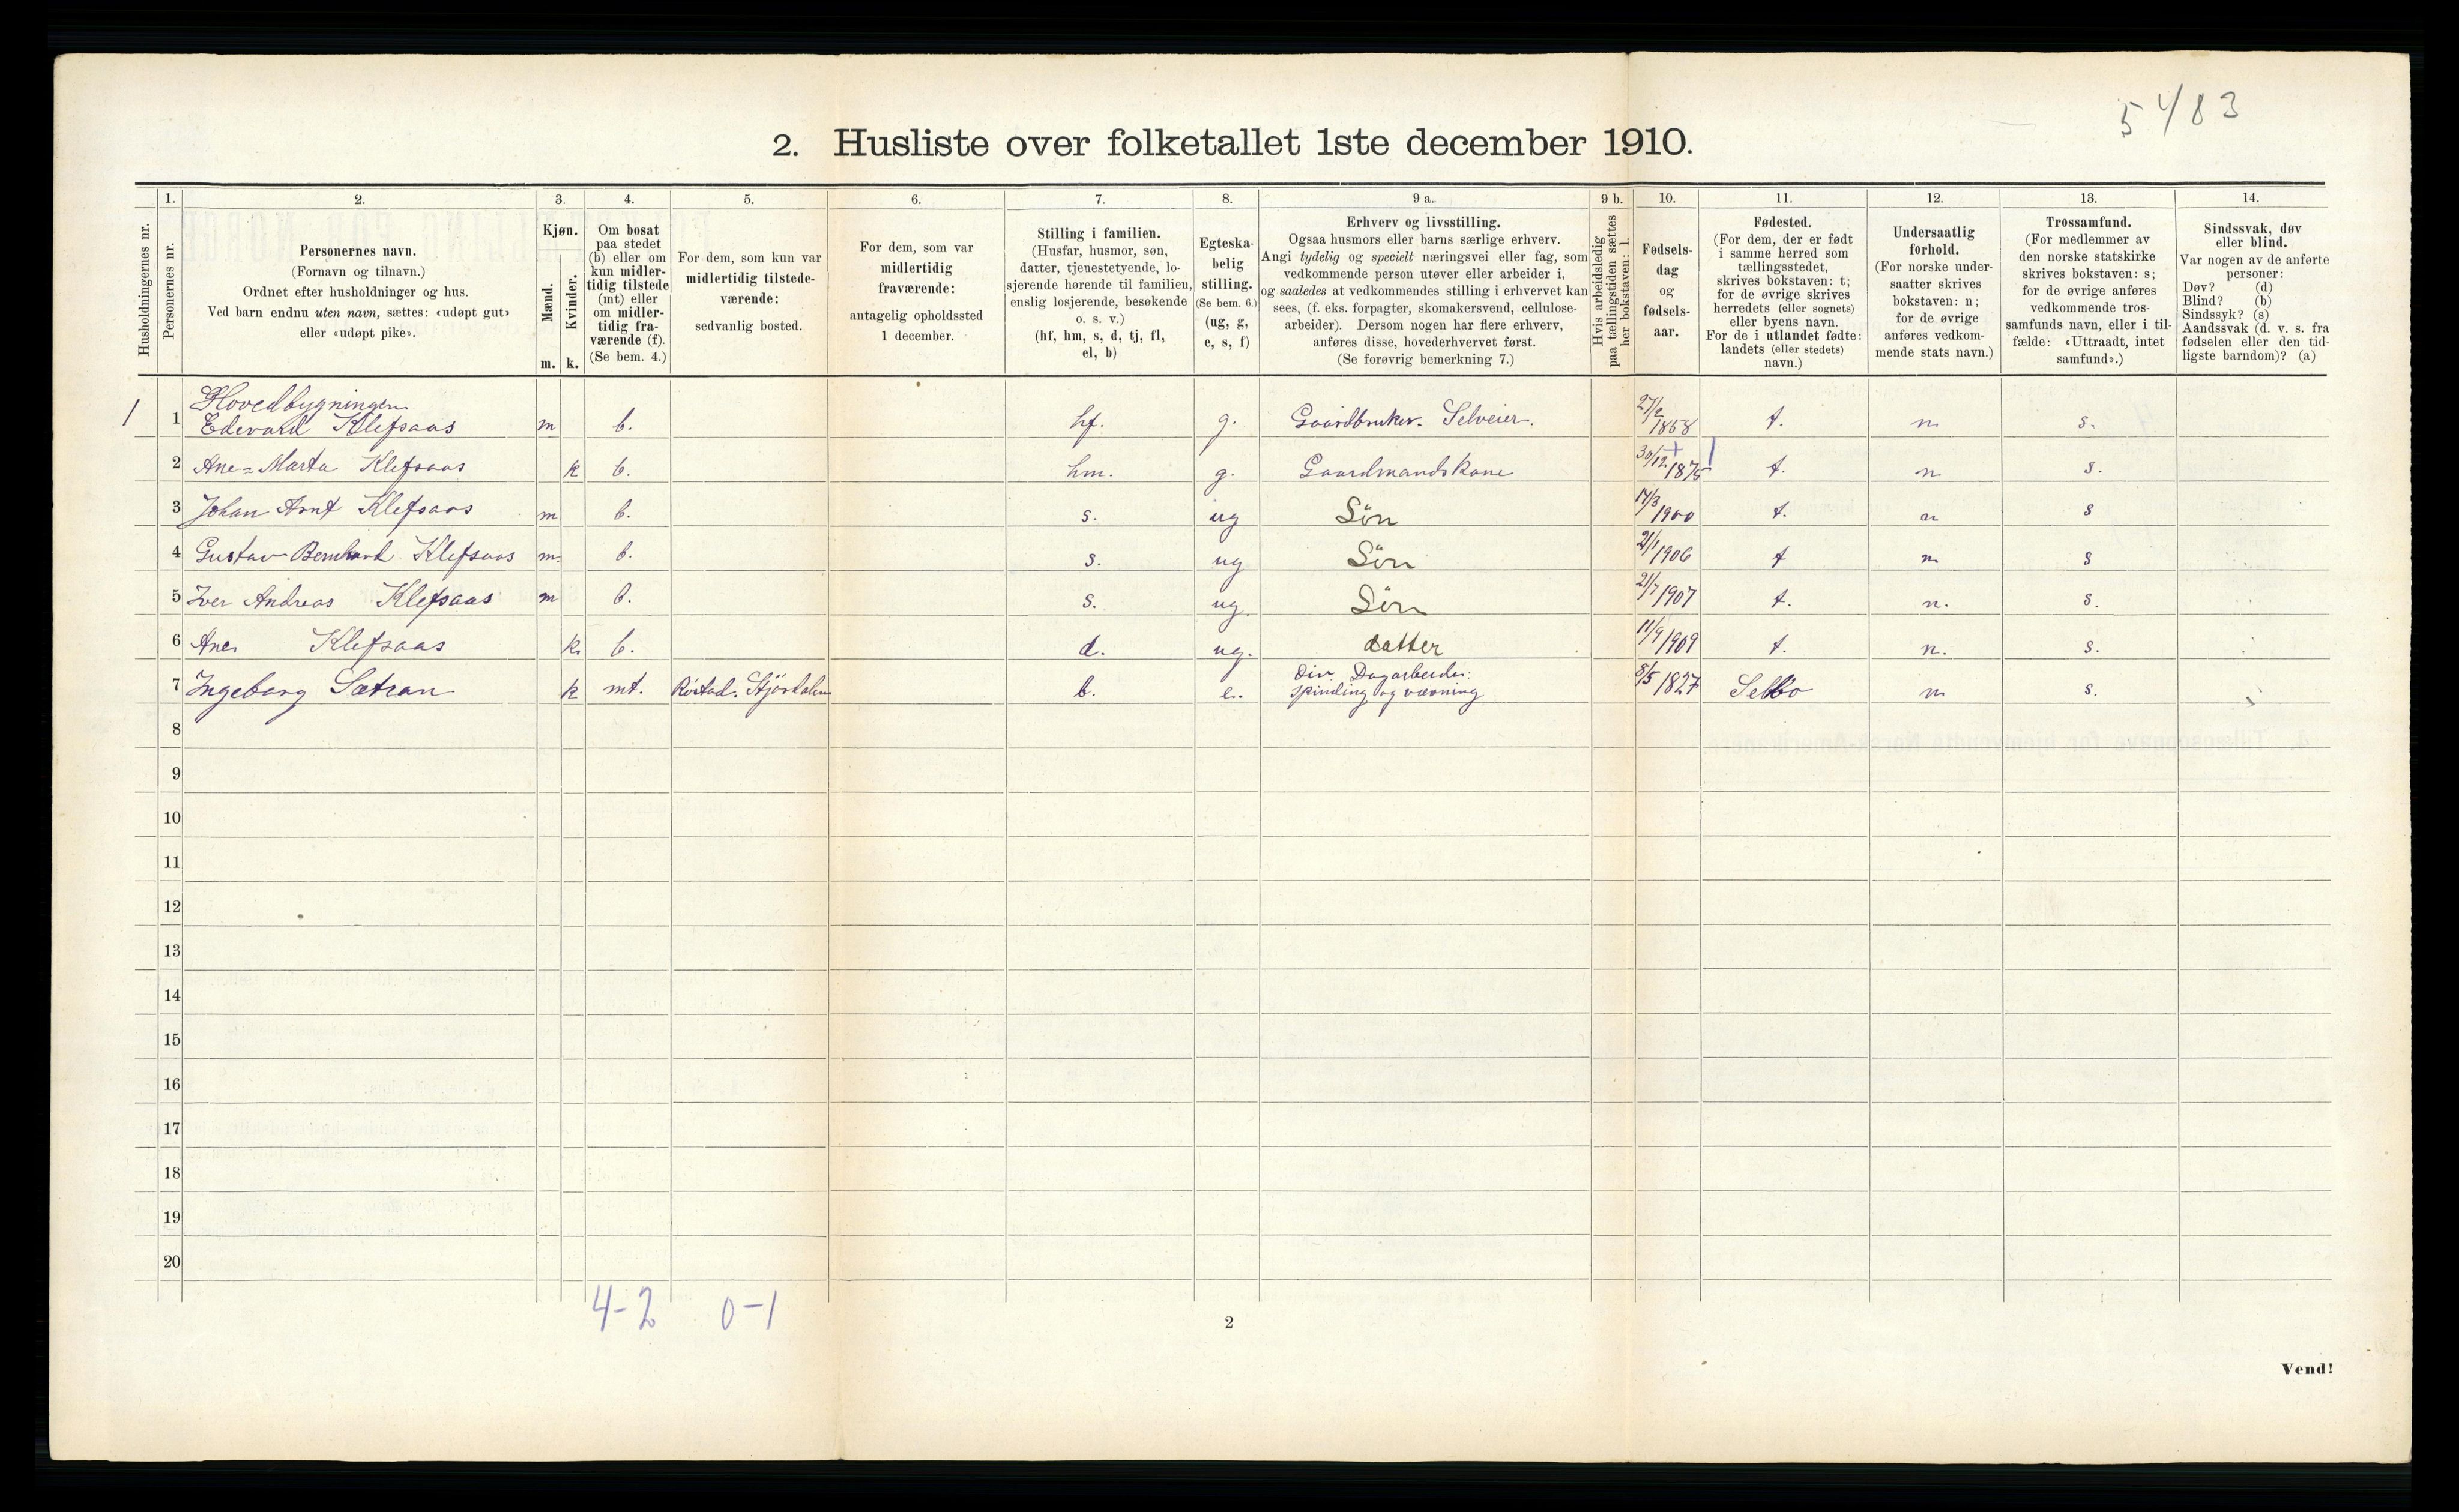 5483
2. Husliste over folketallet 1ste december 1910.
Husholdningernes nr.
1.
Personernes nr.
2.
Personernes navn.
(Fornavn og tilnavn.)
Ordnet efter husholdninger og hus.
Ved barn endnu uten navn, sættes: «udøpt gut»
eller «udøpt pike».
3.
Kjøn.
Mænd.
Kvinder.
m. k.
4.
Om bosat
paa stedet
(b) eller om
kun midler-
tidig tilstede
(mt) eller
om midler-
tidig fra-
værende (f).
(Se bem. 4.)
5.
For dem, som kun var
midlertidig tilstede-
værende:
sedvanlig bosted.
6.
For dem, som var
midlertidig
fraværende:
antagelig opholdssted
1 december.
7.
Stilling i familien.
(Husfar, husmor, søn,
datter, tjenestetyende, lo-
sjerende hørende til familien,
enslig losjerende, besøkende
o. s. v.)
(hf, hm, s, d, tj, fl,
el, b)
8.
Egteska-
belig
stilling.
(Se bem. 6.)
(ug, g,
e, s, f)
9 a.
Erhverv og livsstilling.
Ogsaa husmors eller barns særlige erhverv.
Angi tydelig og specielt næringsvei eller fag, som
vedkommende person utøver eller arbeider i,
og saaledes at vedkommendes stilling i erhvervet kan
sees, (f. eks. forpagter, skomakersvend, cellulose-
arbeider). Dersom nogen har flere erhverv,
anføres disse, hovederhvervet først.
(Se forøvrig bemerkning 7.)
9 b.
Hvis arbeidsledig
paa tællingstiden sættes
her bokstaven: l.
10.
Fødsels-
dag
og
fødsels-
aar.
11.
Fødested.
(For dem, der er født
i samme herred som
tællingsstedet,
skrives bokstaven: t;
for de øvrige skrives
herredets (eller sognets)
eller byens navn.
For de i utlandet fødte:
landets (eller stedets)
navn.)
12.
Undersaatlig
forhold.
(For norske under-
saatter skrives
bokstaven: n;
for de øvrige
anføres vedkom-
mende stats navn.)
13.
Trossamfund.
(For medlemmer av
den norske statskirke
skrives bokstaven: s;
for de øvrige anføres
vedkommende tros-
samfunds navn, eller i til-
fælde: «Uttraadt, intet
samfund».)
14.
Sindssvak, døv
eller blind.
Var nogen av de anførte
personer:
Døv? (d)
Blind? (b)
Sindssyk? (s)
Aandssvak (d. v. s. fra
fødselen eller den tid-
ligste barndom)? (a)
Hovedbygningen
1 1 Edevard Klefsaas m b. hf. g. Gaardbruker. Selveier. 27/2 1868 t. n. s.
2 Ane=Marta Klefsaas k b. hm. g. Gaardmandskone 30/12 1875 t. n s.
3 Johan Arnt Klefsaas m b. s. ug Søn 14/3 1900 t. n s
4 Gustav Bernhard Klefsaas m. b. s. ug Søn 21/1 1906 t n. s
5 Iver Andreas Klefsaas m b. s. ug. Søn 21/7 1907 t. n. s.
6 Ane Klefsaas k. b. d. ug. datter 11/9 1909 t. n. s.
7 Ingeborg Sætran k mt. Stjördalen b. e. Div. Dagarbeide:
spinding og vævning 8/5 1827 Selbo n s.
8
9
10
11
12
13
14
15
16
17
18
19
20
4-2 0-1
2
Vend!